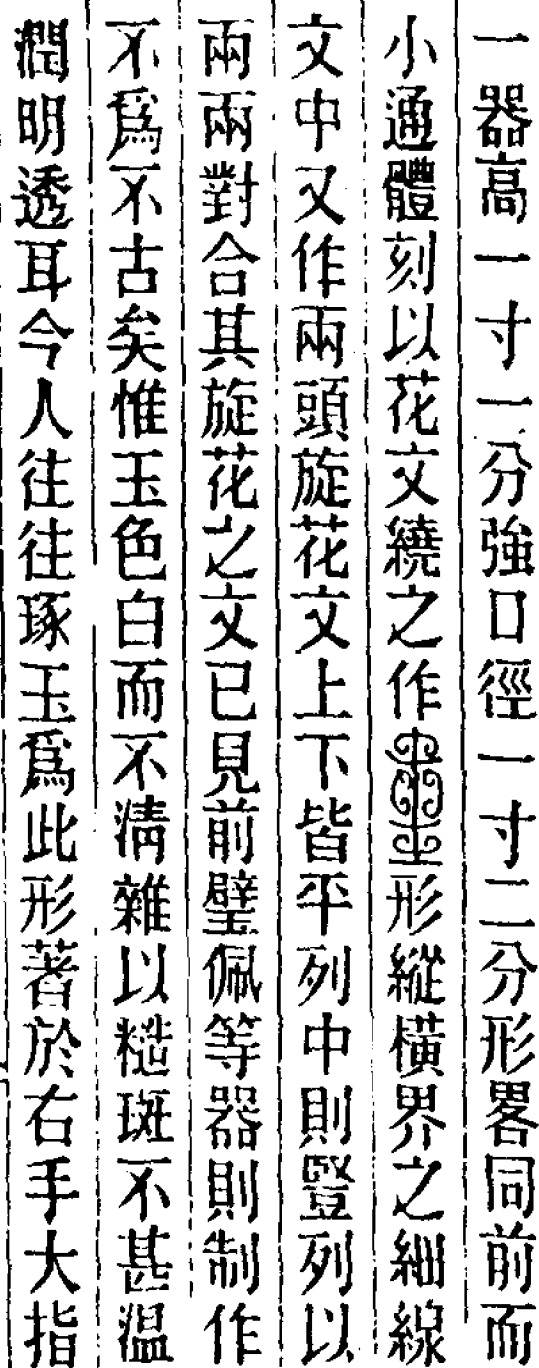 一器高一寸一分強口徑一寸二分形畧同前而
小通體刻以花文繞之作形縱橫界之細線
文中又作兩頭旋花文上下皆平列中則豎列以
兩兩對合其旋花之文已見前璧佩等器則制作
不爲不古矣惟玉色白而不淸雜以糙斑不甚溫
潤明透耳今人往往琢玉爲此形著於右手大指